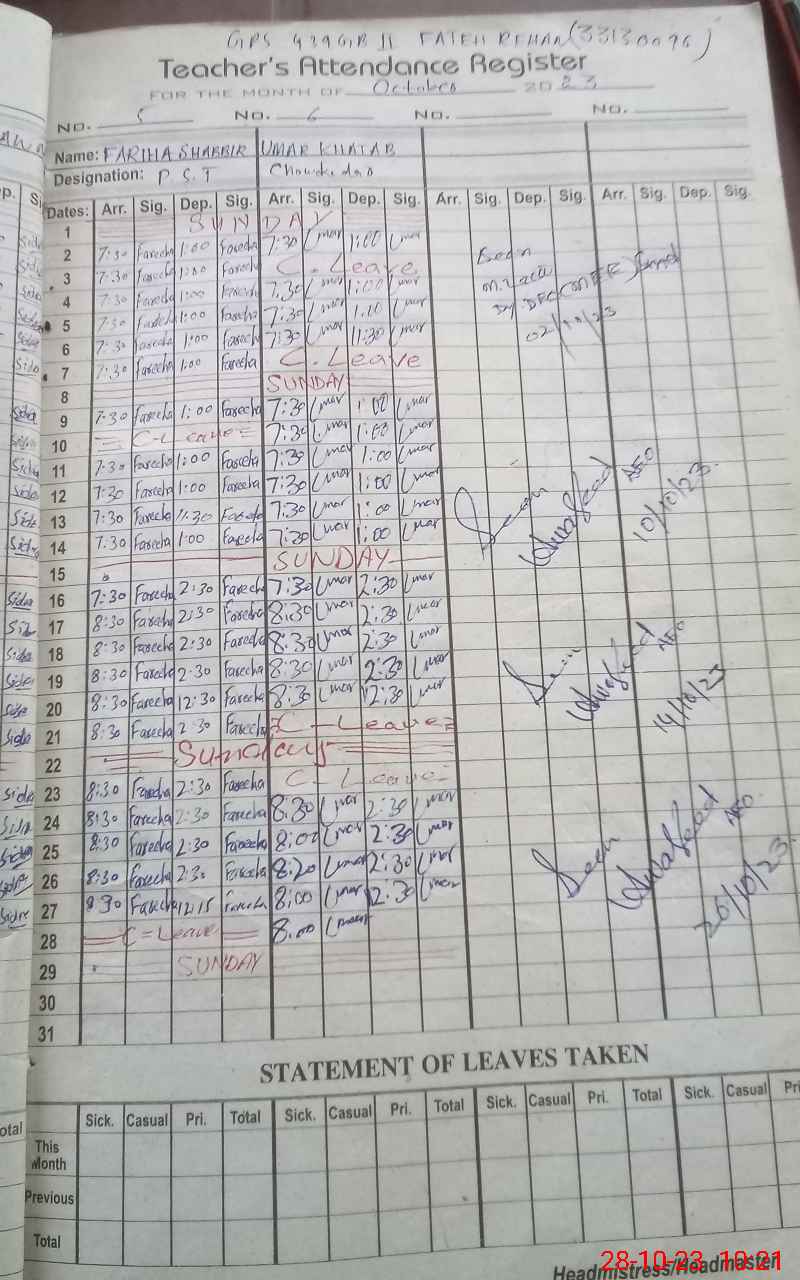 GPS 439 GB II FATEH REHAN (33130096)
Teacher's Attendance Register
FOR THE MONTH OF October 2023
NO. 5 NO. 6 NO. NO.
Name: FARIHA SHABBIR UMAR KHATAB
Designation: P S T Chowkidar
Dates: Arr. Sig. Dep. Sig. Arr. Sig. Dep. Sig. Arr. Sig. Dep. Sig. Arr. Sig. Dep. Sig.
1 SUNDAY
2 7:30 Fareeha 1:00 Fareeha 7:30 Umar 1:00 Umar
3 7:30 Fareeha 1:00 Fareeha C. Leave
4 7:30 Fareeha 1:00 Fareeha 7:30 Umar 1:00 Umar
5 7:30 Fareeha 1:00 Fareeha 7:30 Umar 1:00 Umar
6 7:30 Fareeha 1:00 Fareeha 7:30 Umar 11:30 Umar
7 7:30 Fareeha 1:00 Fareeha C. Leave
02/10/23
8 SUNDAY
9 7:30 Fareeha 1:00 Fareeha 7:30 Umar 1:00 Umar
10 C-Leave 7:30 Umar 1:00 Umar
11 7:30 Fareeha 1:00 Fareeha 7:30 Umar 1:00 Umar
12 7:30 Fareeha 1:00 Fareeha 7:30 Umar 1:00 Umar
13 7:30 Fareeha 11:30 Fareeha 7:30 Umar 1:00 Umar
14 7:30 Fareeha 1:00 Fareeha 7:30 Umar 1:00 Umar
Seen AEO 10/10/23
15 SUNDAY
16 7:30 Fareeha 2:30 Fareeha 7:30 Umar 2:30 Umar
17 8:30 Fareeha 2:30 Fareeha 8:30 Umar 2:30 Umar
18 8:30 Fareeha 2:30 Fareeha 8:30 Umar 2:30 Umar
19 8:30 Fareeha 2:30 Fareeha 8:30 Umar 2:30 Umar
20 8:30 Fareeha 12:30 Fareeha 8:30 Umar 12:30 Umar
21 8:30 Fareeha 2:30 Fareeha C-Leave
Seen AEO 14/10/23
22 Sunday
23 8:30 Fareeha 2:30 Fareeha C-Leave
24 8:30 Fareeha 2:30 Fareeha 8:30 Umar 2:30 Umar
25 8:30 Fareeha 2:30 Fareeha 8:00 Umar 2:30 Umar
26 8:30 Fareeha 2:30 Fareeha 8:20 Umar 2:30 Umar
27 8:30 Fareeha 12:15 Fareeha 8:00 Umar 12:30 Umar
Seen AEO 26/10/23
28 C-Leave 8:00 Umar
29 SUNDAY
30
31
STATEMENT OF LEAVES TAKEN
Sick. Casual Pri. Total Sick. Casual Pri. Total Sick. Casual Pri. Total Sick. Casual Pri
This Month
Previous
Total
Headmistress/Headmaster
28-10-23 10:21